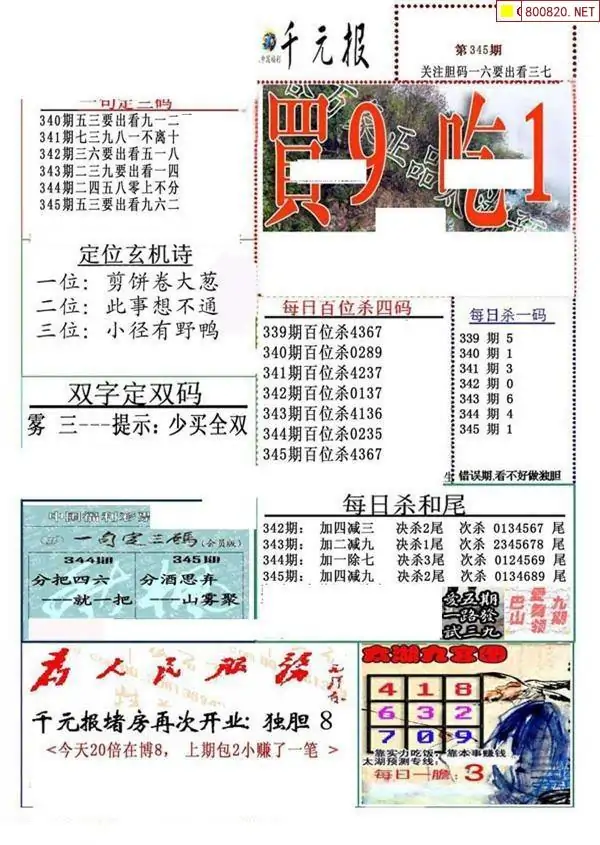 800820.NET
千元报
第345期
关注胆码一六要出看三七
一句定三码
340期五三要出看九一二
341期七三九八一不离十
342期三六要出看五一八
343期二三九要出看一四
344期二四五八零上不分
345期五三要出看九六二
買9 吃1
定位玄机诗
一位：剪饼卷大葱
二位：此事想不通
三位：小径有野鸭
每日百位杀四码
339期百位杀4367
340期百位杀0289
341期百位杀4237
342期百位杀0137
343期百位杀4136
344期百位杀0235
345期百位杀4367
每日杀一码
339 期 5
340 期 1
341 期 3
342 期 0
343 期 6
344 期 4
345 期 1
错误期,看不好做独胆
双字定双码
雾 三---提示：少买全双
每日杀和尾
342期： 加四减三 决杀2尾 次杀 0134567 尾
343期： 加二减九 决杀1尾 次杀 2345678 尾
344期： 加一除七 决杀3尾 次杀 0124569 尾
345期： 加四减九 决杀2尾 次杀 0134689 尾
中国福利彩票
一句定三码(会员版)
344期
345期
分把四六
——就一把
分酒思弃
——山雾聚
爱五期
一路发
试三九
九期
爱舞领
巴山
为人民服务
千元报堵房再次开业: 独胆 8
<今天20倍在博8， 上期包2小赚了一笔 >
太湖九宫图
4 1 8
6 3 2
7 0 9
靠实力吃饭，靠本事赚钱
太湖预测专线：
每日一胆：3